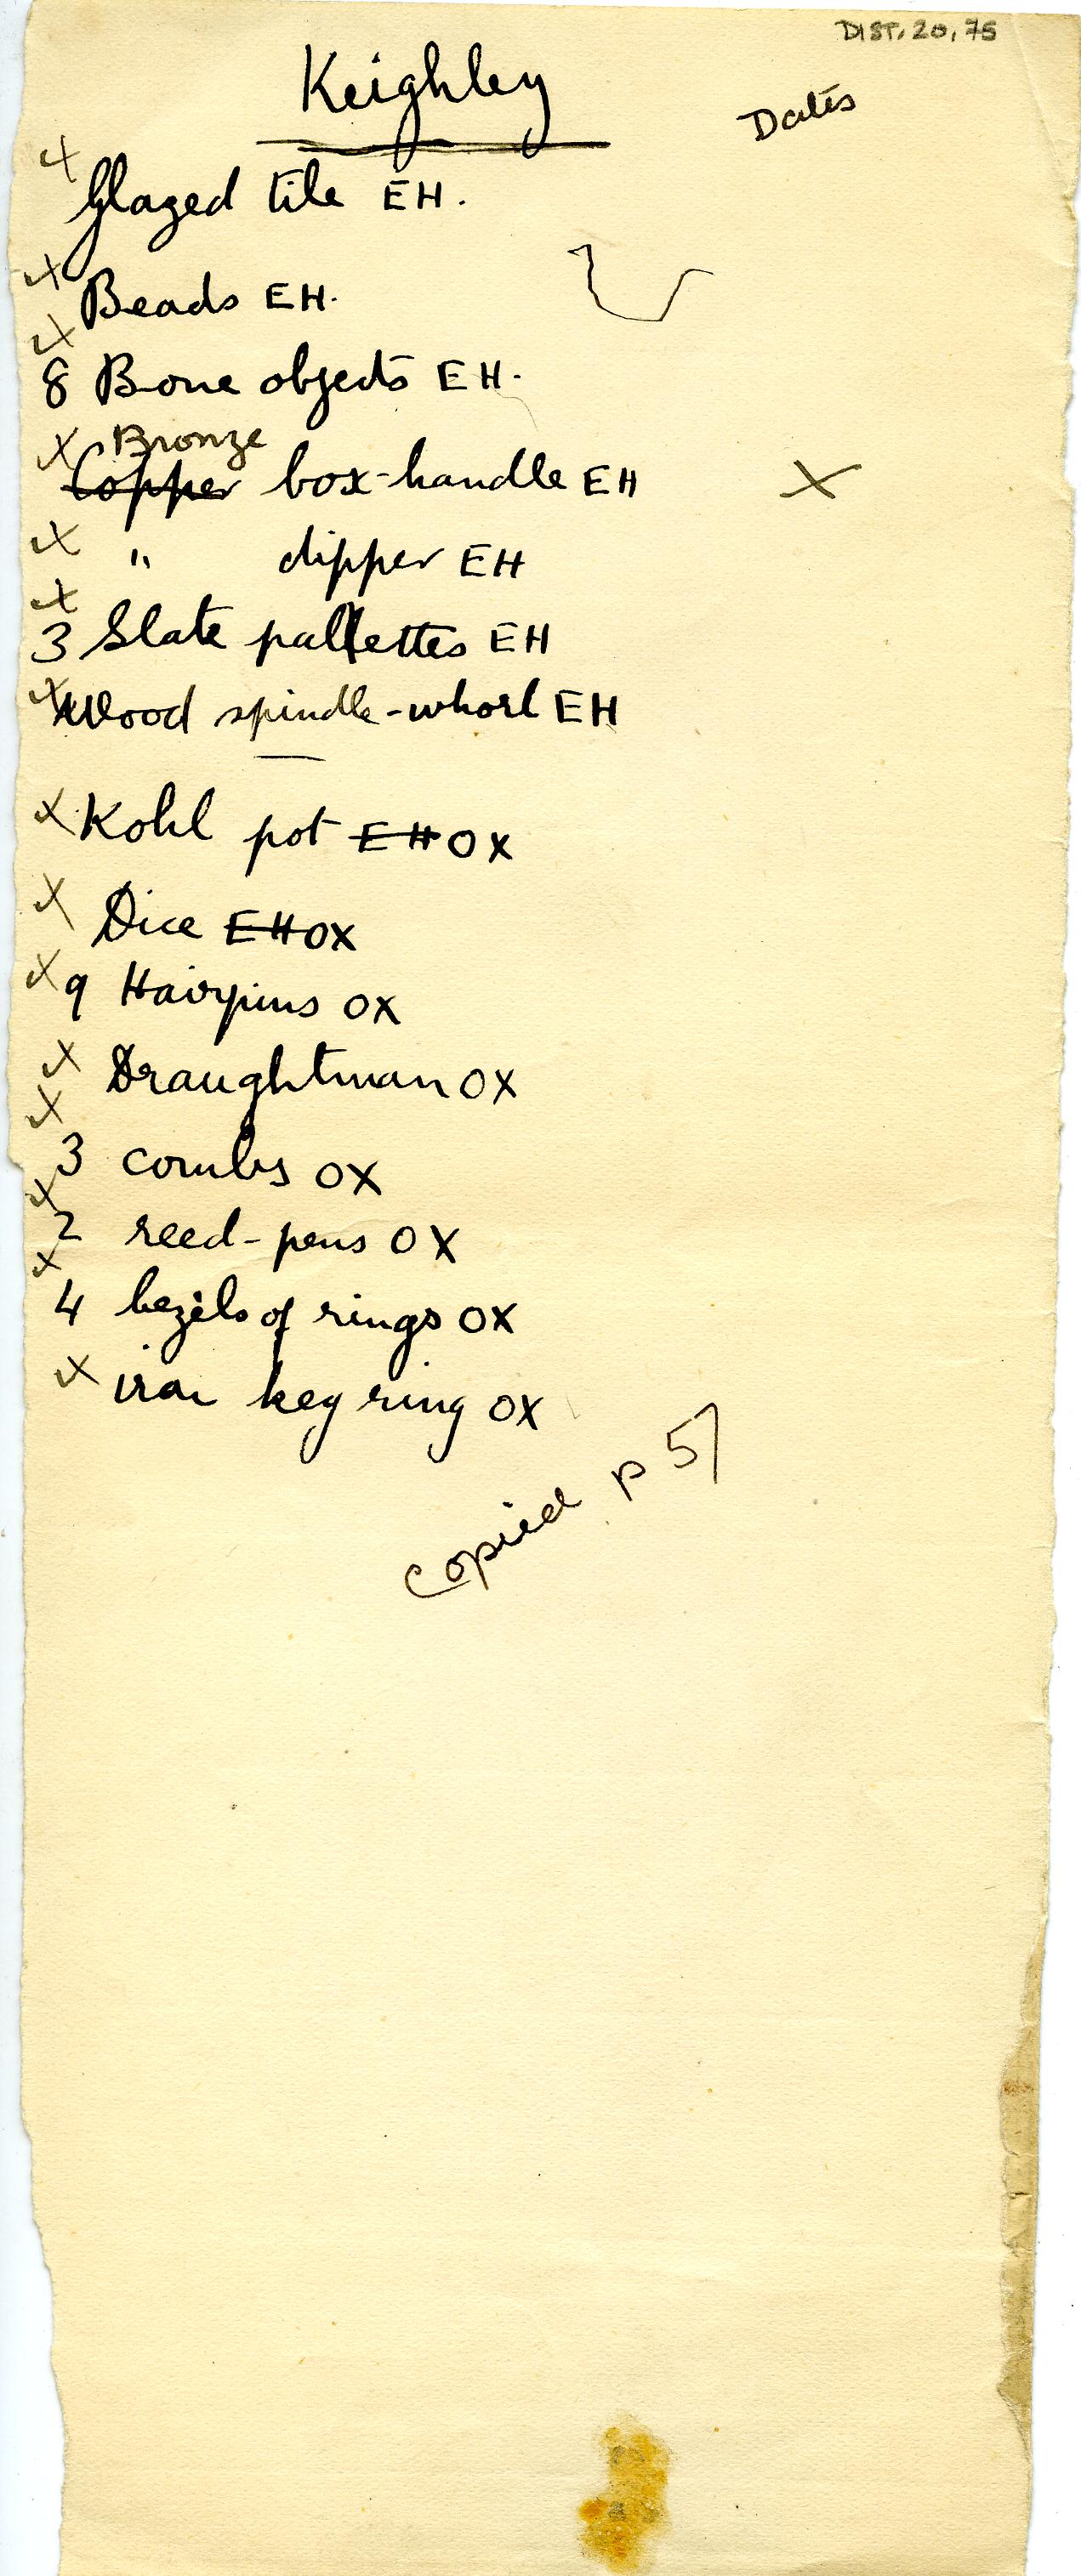 DIST. 20, 75
Keighley
Dates
Glazed tile EH.
Beads EH.
8 Bone objects EH.
Bronze
Copper box-handle EH X
" dipper EH
3 Slate pallettes EH
Wood spindle-whorl EH
Kohl pot EH OX
Dice EH OX
9 Hairpins OX
Draughtman OX
3 combs OX
2 reed-pens OX
4 bezels of rings OX
iron key ring OX
copied p 57